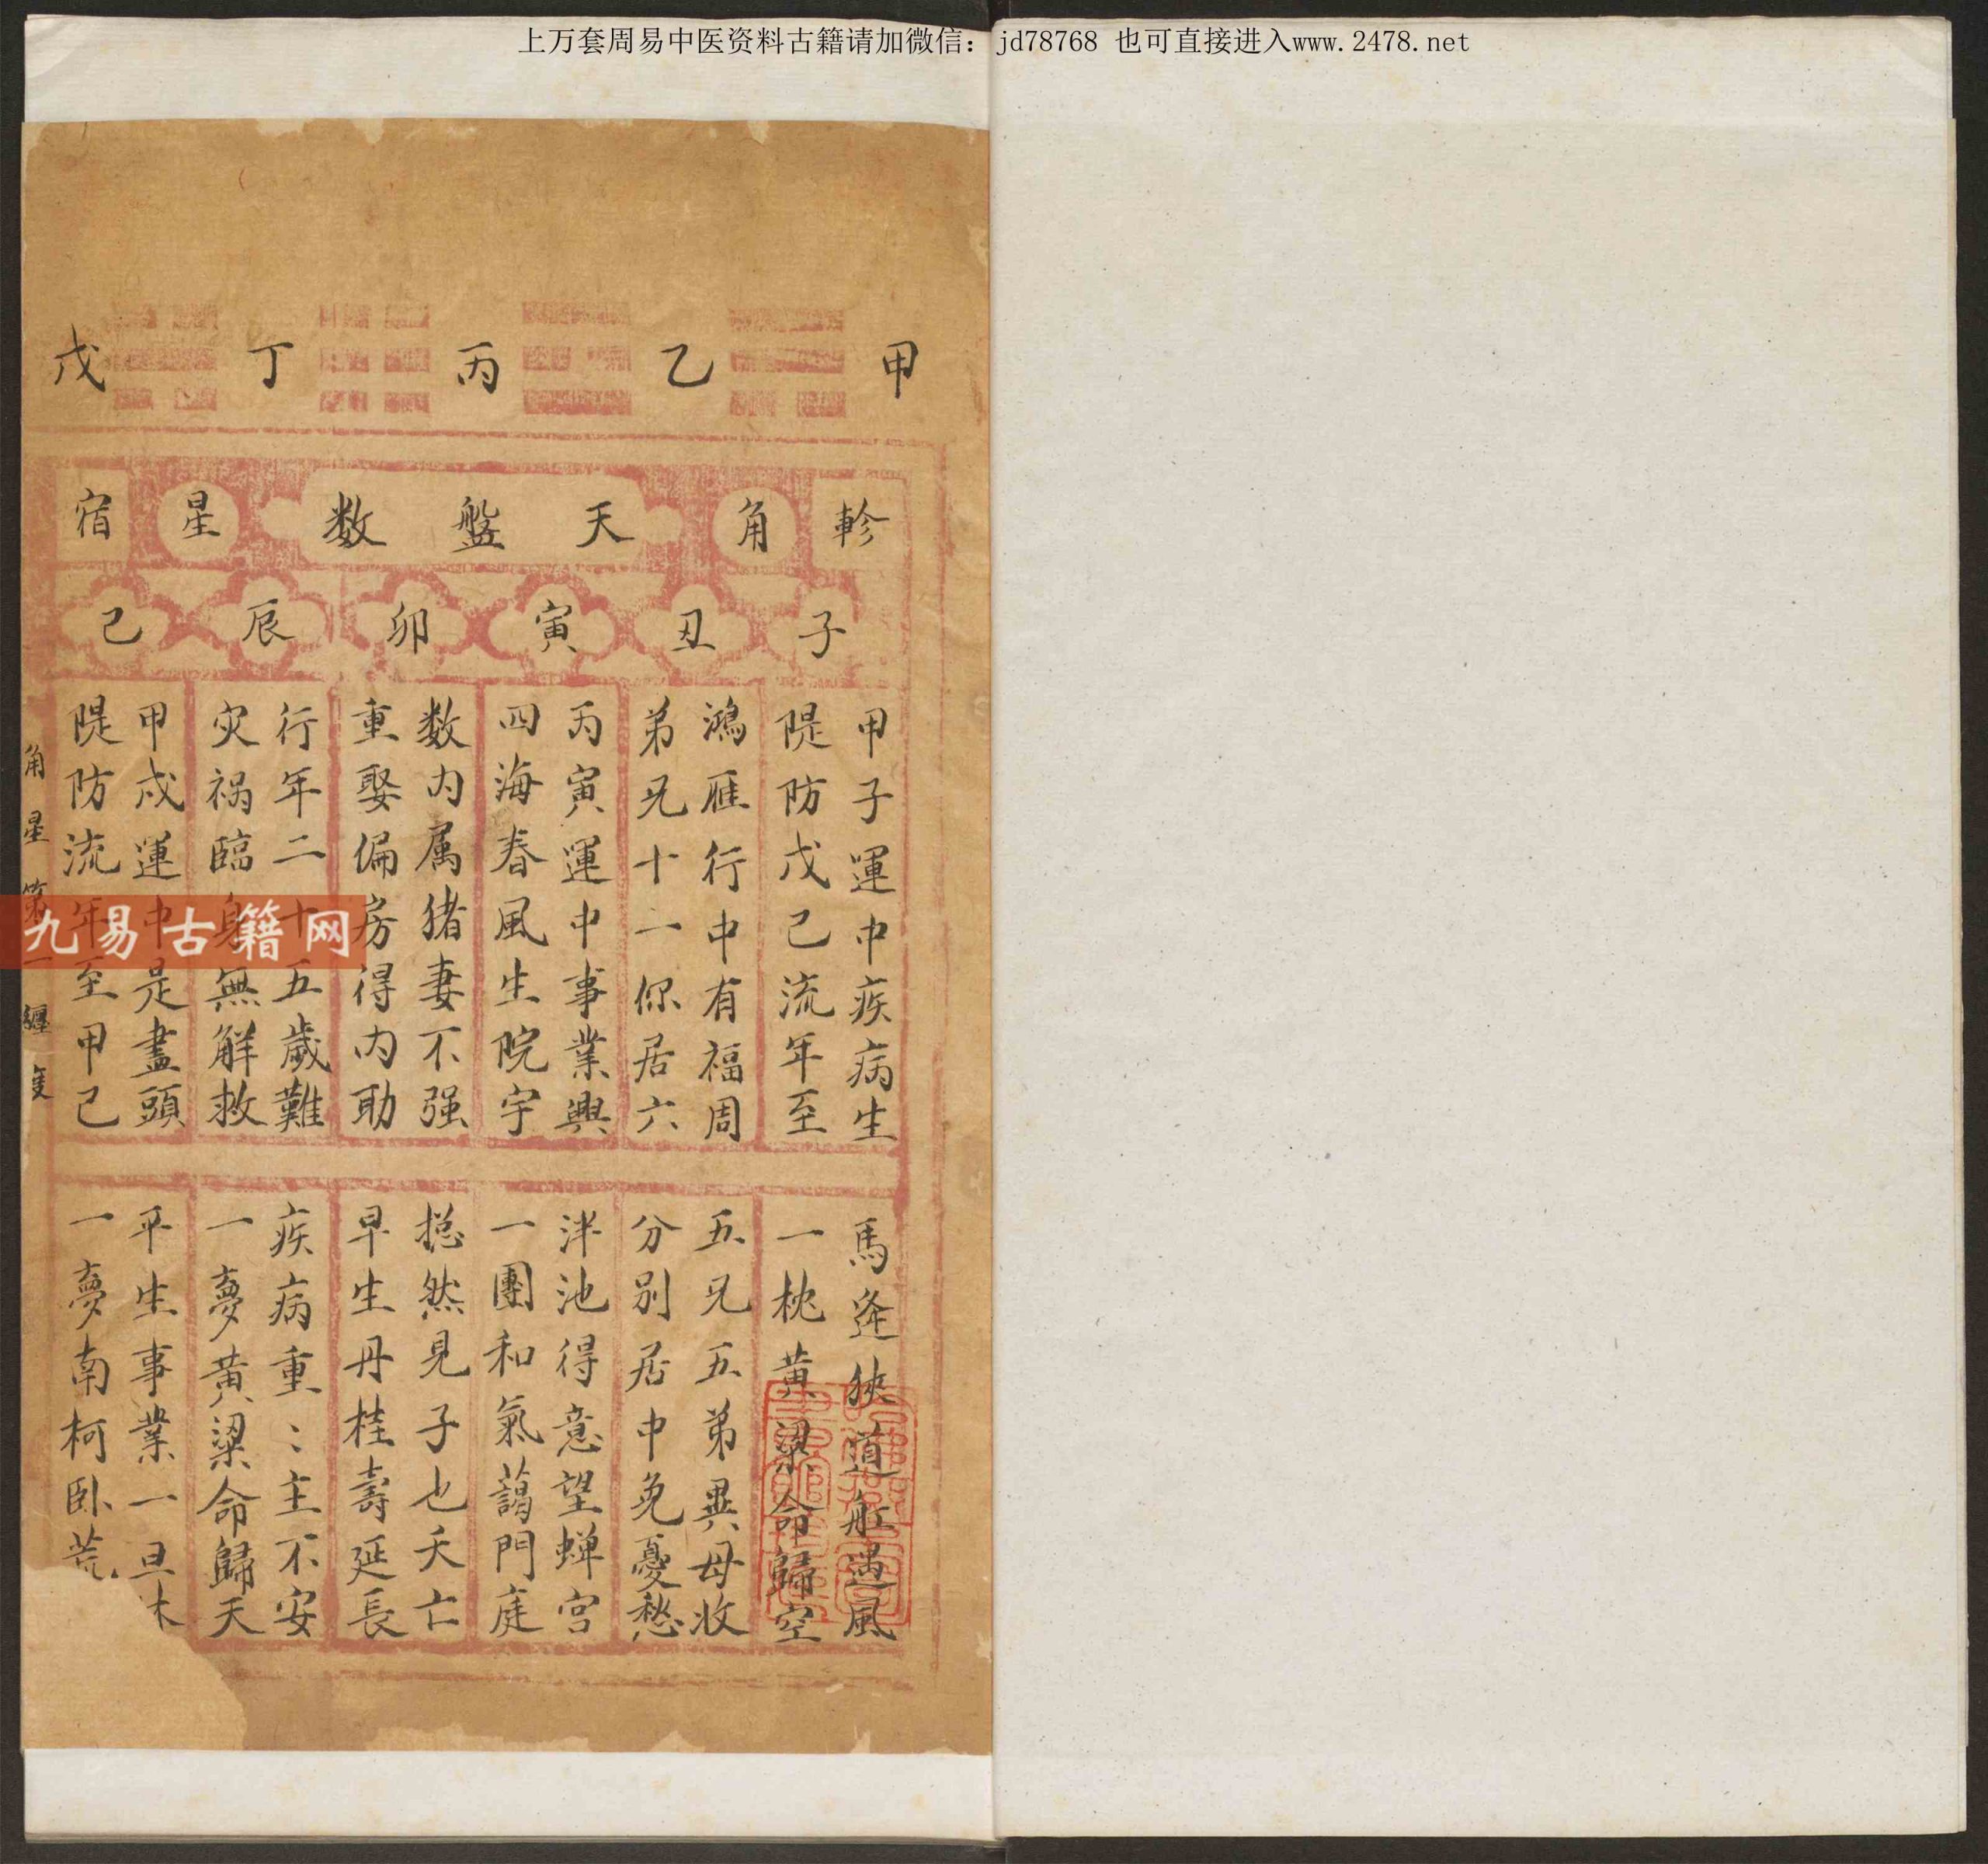 上万套周易中医资料古籍请加微信：jd78768 也可直接进入www.2478.net
甲 乙 丙 丁 戊
軫 角 天盤数 星 宿
子 丑 寅 卯 辰 己
甲子運中疾病生
隄防戊己流年至
鴻雁行中有福周
弟兄十一你居六
丙寅運中事業興
四海春風生院宇
数内属猪妻不强
重娶偏房得内助
行年二十五歲難
灾禍臨身無解救
甲戌運中是盡頭
隄防流年至甲己
馬逢狹道舡遇風
一枕黄粱命歸空
五兄五弟異母收
分别居中免憂愁
泮池得意望蟬宫
一團和氣藹門庭
摠然見子也夭亡
早生丹桂壽延長
疾病重〻主不安
一夢黄粱命歸天
平生事業一旦休
一夢南柯卧荒
角星第一纏度
九易古籍网